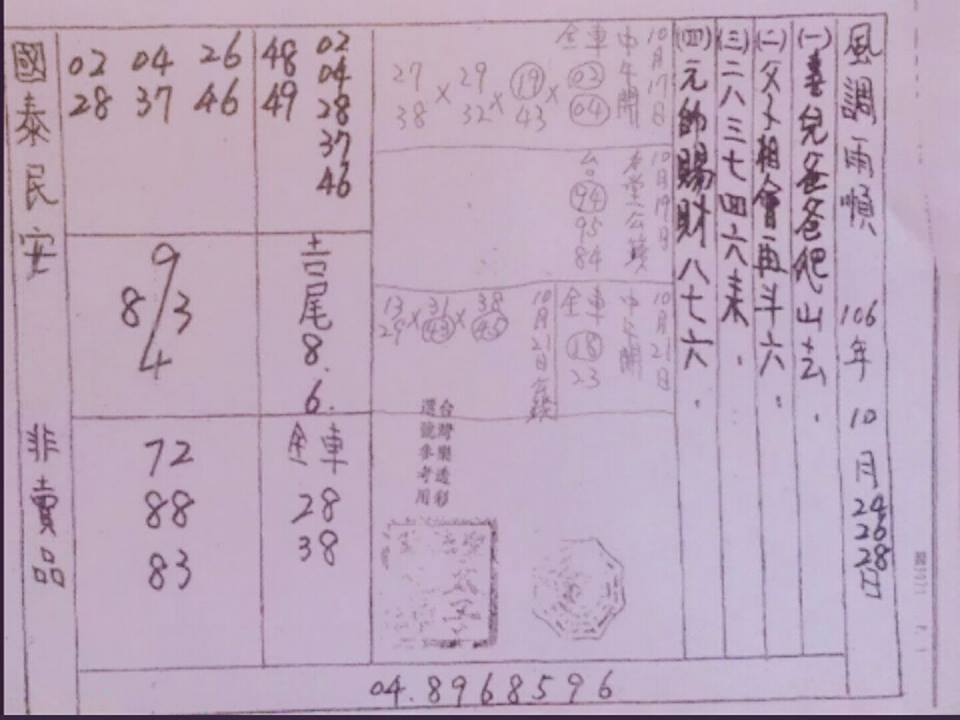 風調雨順 106年 10月24 26 28日
(一)
兒爸爸爬山去.
(二)父子相會再斗六:
(三)二八三七四六来.
(四)元帥賜財八七六.
10月17日
中午開
全車
02
04
19
43
×
29
32
×
27
38
×
10月19日
本堂公籤
台
94
95
84
10月21日
中午開
全車
18
23
10月21日
38
45
×
31
43
×
13
29
台灣樂透彩
選號參考用
02
04
28
37
46
48
49
02 04 26
28 37 46
吉尾8.6.
9
8/3
4
全車
28
38
72
88
83
國泰民安 非賣品
04.8968596